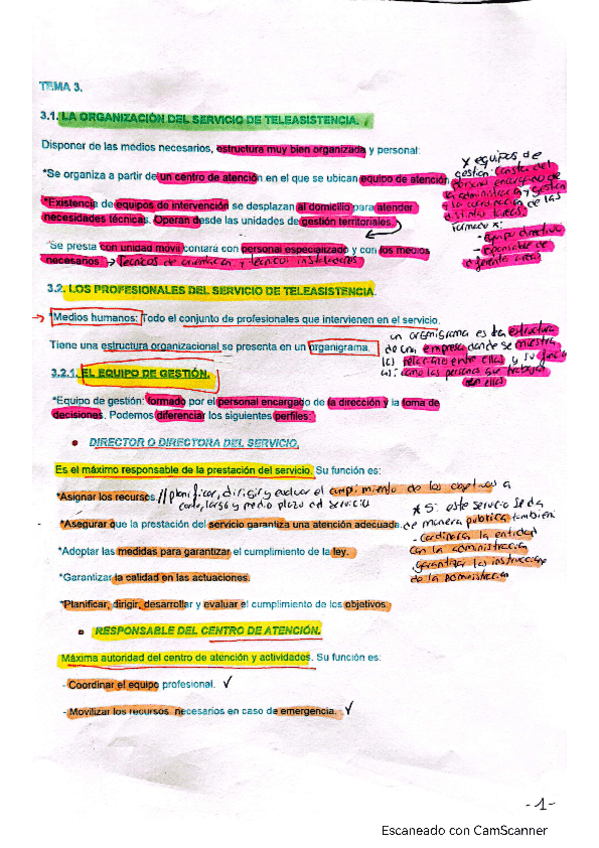 TEMA 3.
3.1. LA ORGANIZACIÓN DEL SERVICIO DE TELEASISTENCIA.
Disponer de los medios necesarios, estructura muy bien organizada y personal:
*Se organiza a partir de un centro de atención en el que se ubican equipo de atención
*Existencia de equipos de intervención se desplazan al domicilio para atender
necesidades técnicas. Operan desde las unidades de gestión territoriales.
*Se presta con unidad móvil contará con personal especializado y con los medios
necesarios. → Técnicos de orientación y técnicos instaladores
x equipos de
gestión: consta del
personal encargado de
la administración y gestión
y la coordinación de las
distintas tareas.
- Equipo directivo
- responsable de
diferentes áreas
3.2. LOS PROFESIONALES DEL SERVICIO DE TELEASISTENCIA.
→ *Medios humanos: Todo el conjunto de profesionales que intervienen en el servicio.
Tiene una estructura organizacional se presenta en un organigrama.
un organigrama es la estructura
de una empresa donde se muestra
las relaciones entre ellas y su
como las personas que trabajan
en ellas
3.2.1. EL EQUIPO DE GESTIÓN.
*Equipo de gestión: formado por el personal encargado de la dirección y la toma de
decisiones. Podemos diferenciar los siguientes perfiles:
• DIRECTOR O DIRECTORA DEL SERVICIO.
Es el máximo responsable de la prestación del servicio. Su función es:
*Asignar los recursos. // planificar, dirigir y evaluar el cumplimiento de los objetivos a
corto, largo y medio plazo del servicio
*Asegurar que la prestación del servicio garantiza una atención adecuada.
*Adoptar las medidas para garantizar el cumplimiento de la ley.
*Garantizar la calidad en las actuaciones.
*Planificar, dirigir, desarrollar y evaluar el cumplimiento de los objetivos.
* S: este servicio se da
de manera publica también:
- cordinara la entidad
con la administración
- garantizar las
de la Administración
• RESPONSABLE DEL CENTRO DE ATENCIÓN.
Máxima autoridad del centro de atención y actividades. Su función es:
- Coordinar el equipo profesional. ✓
- Movilizar los recursos necesarios en caso de emergencia. ✓
-1-
Escaneado con CamScanner